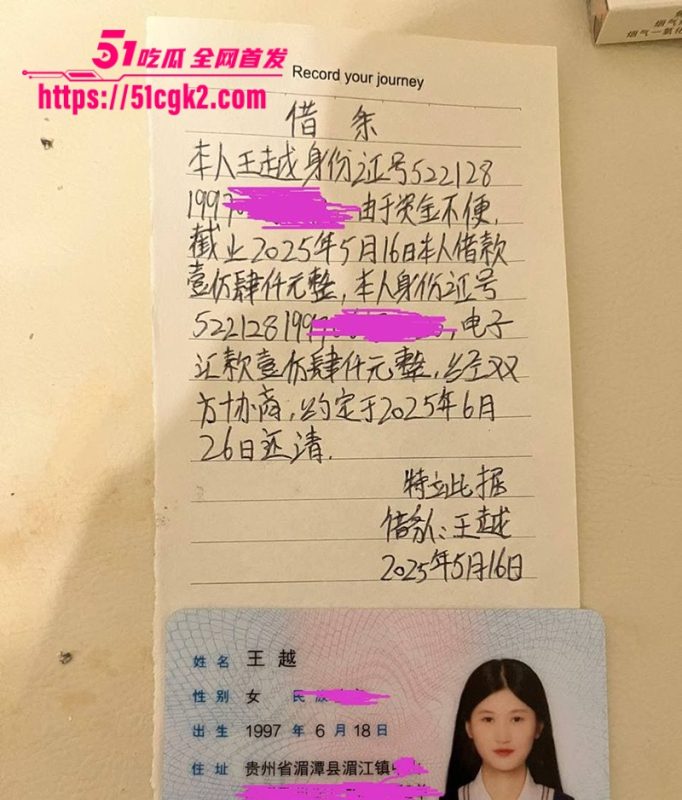 烟气
烟气一氧化
51吃瓜 全网首发
https://51cgk2.com
Record your journey
借 条
本人王越身份证号522128
1997 由于资金不便,
截止2025年5月16日本人借款
壹仟肆仟元整,本人身份证号
522128199 ,电子
汇款壹仟肆仟元整,经双
方协商,约定于2025年6月
26日还清.
特立此据
借条人:王越
2025年5月16日
姓名 王越
性别 女 民族
出生 1997 年 6 月 18 日
住址 贵州省湄潭县湄江镇